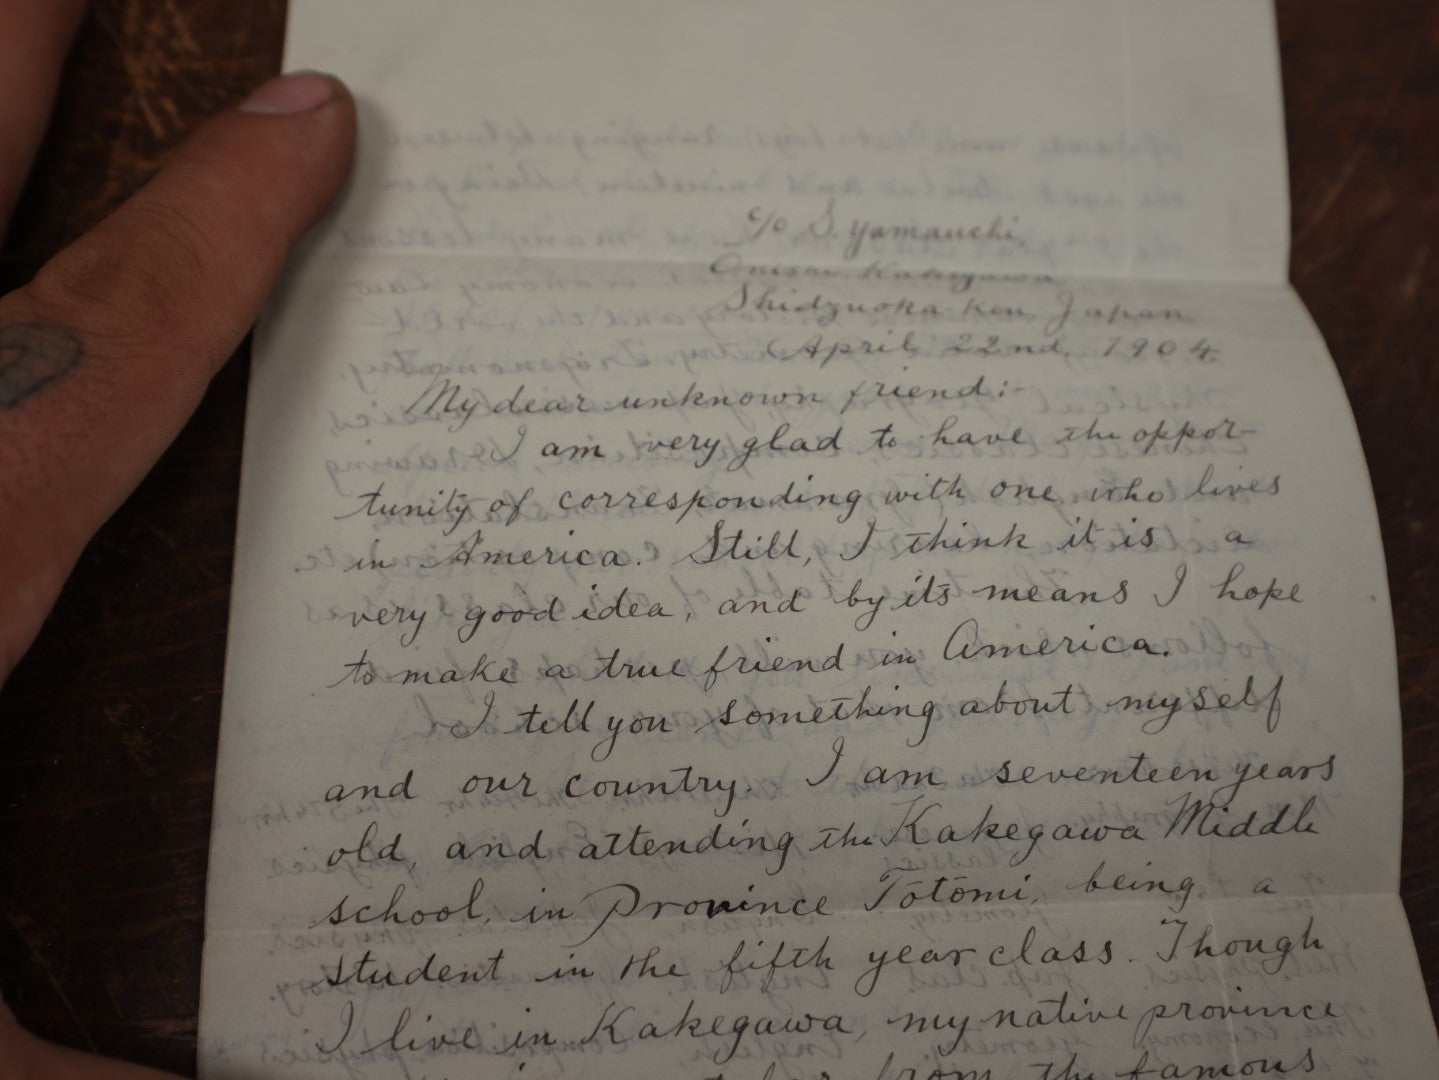 c/o S. Yamauchi,
Onishi. Kakegawa
Shidzuoka Ken, Japan
April 22nd, 1904.
My dear unknown friend:
I am very glad to have the oppor-
tunity of corresponding with one who lives
in America. Still, I think it is a
very good idea, and by its means I hope
to make a true friend in America.
I tell you something about myself
and our country. I am seventeen years
old, and attending the Kakegawa Middle
school, in Province Tōtōmi, being a
student in the fifth year class. Though
I live in Kakegawa, my native province
from the famous